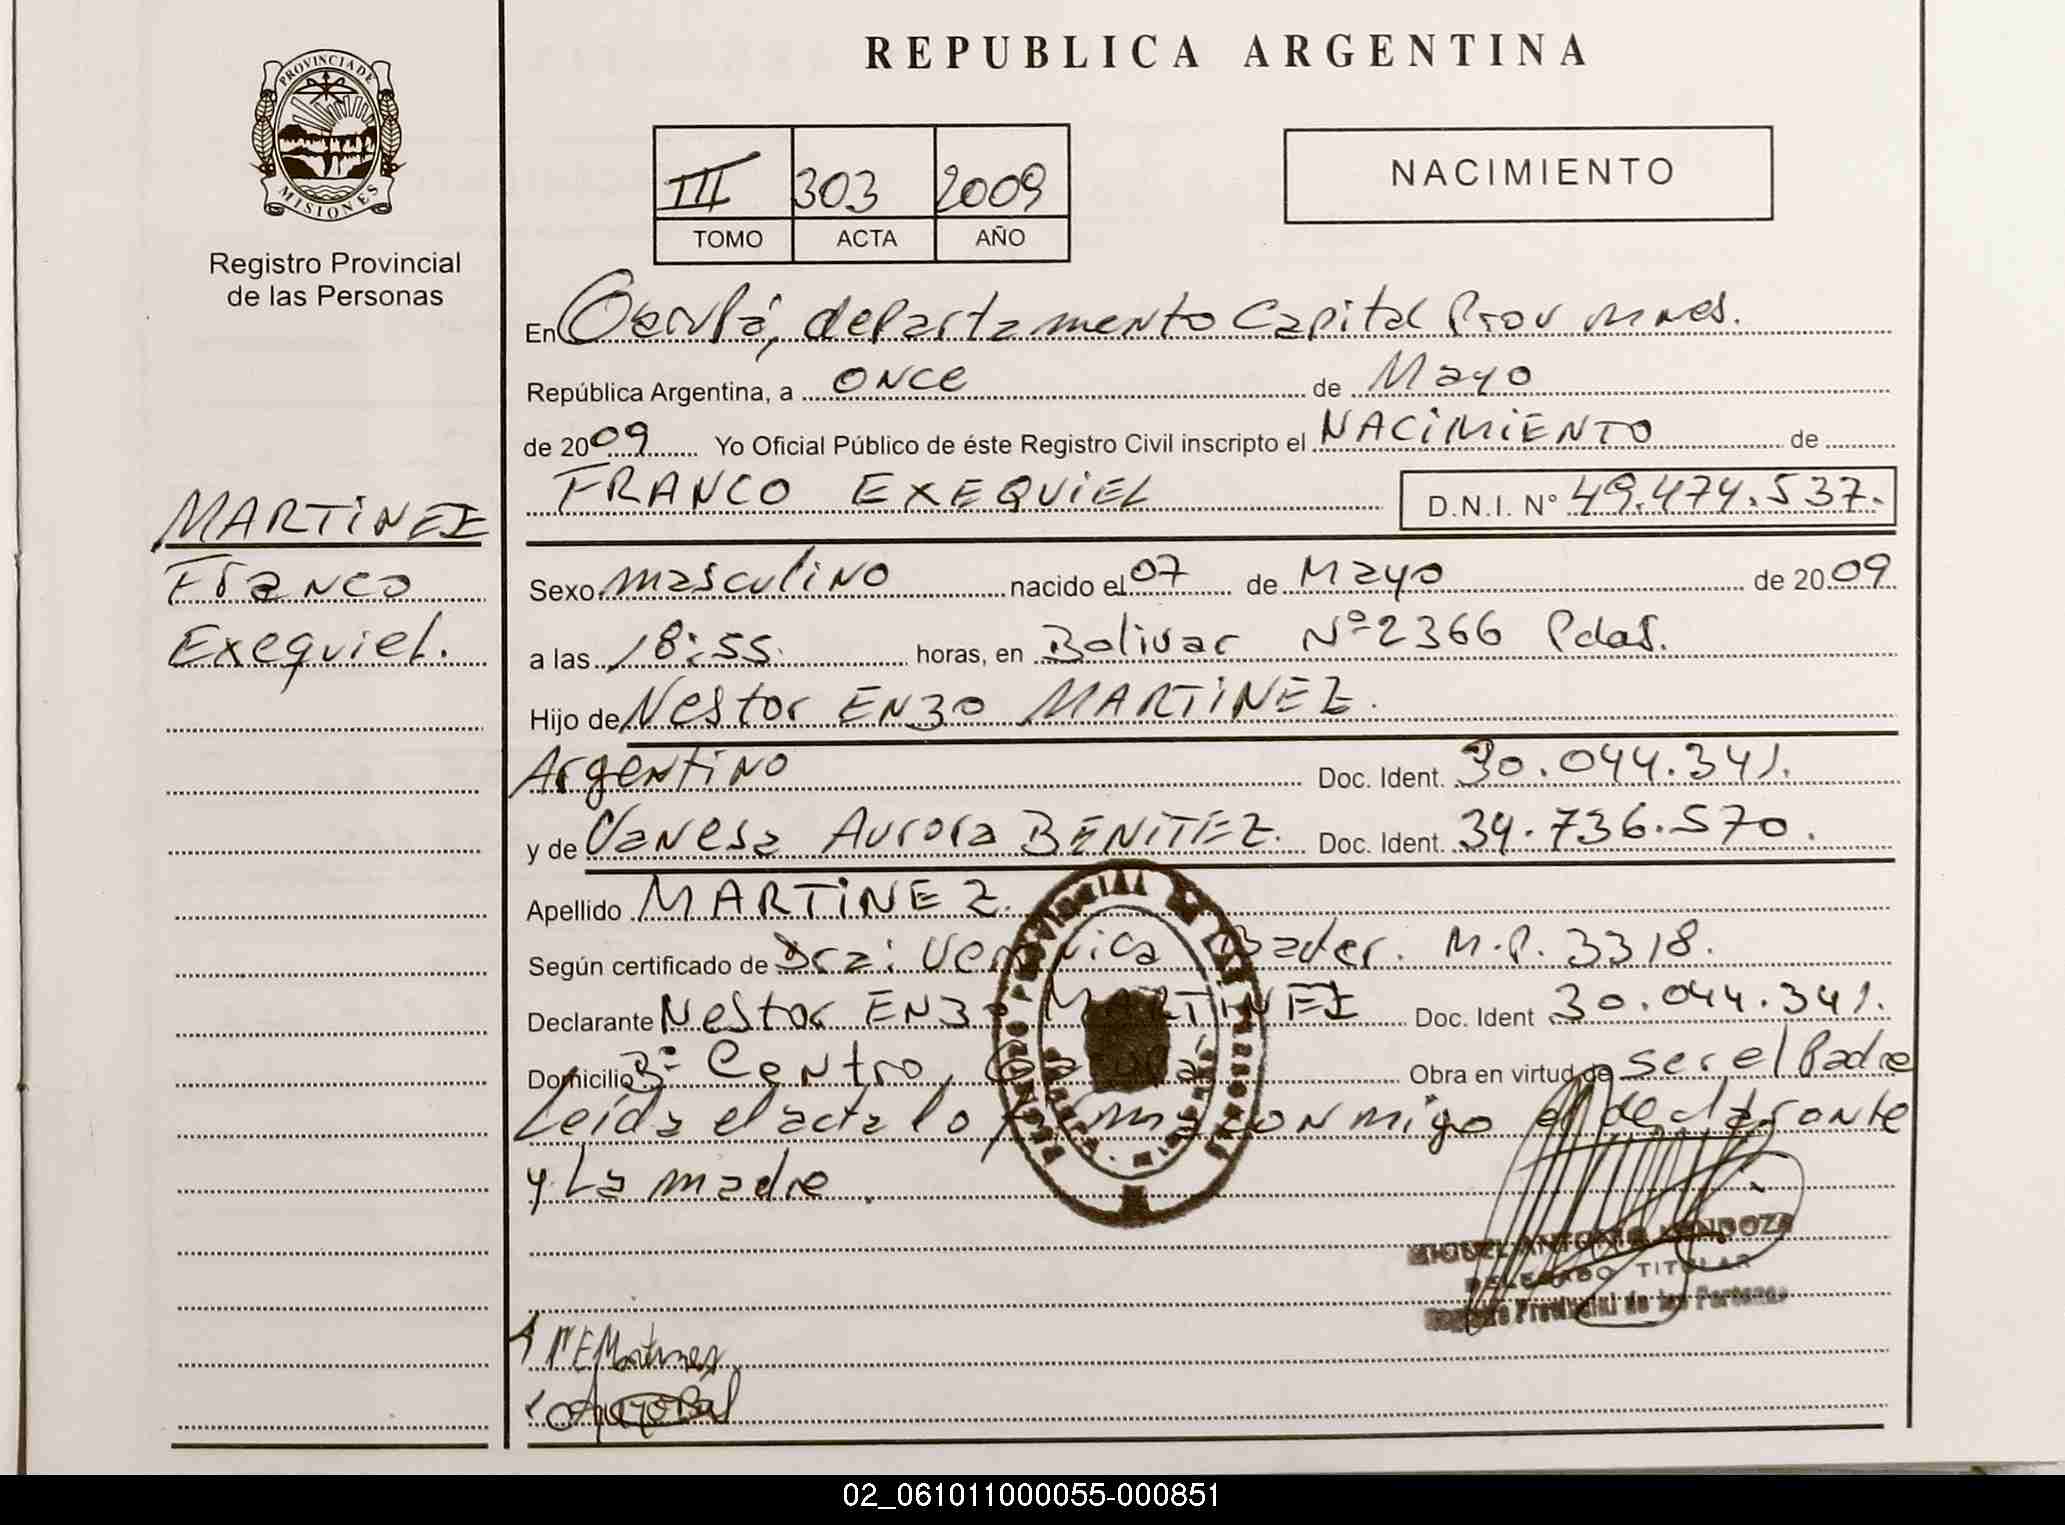 REPUBLICA ARGENTINA
PROVINCIA DE
MISIONES
Registro Provincial
de las Personas
III 303 2009
TOMO ACTA AÑO
NACIMIENTO
En Garupá, departamento Capital Prov Mnes.
República Argentina, a once de Mayo
de 2009 Yo Oficial Público de éste Registro Civil inscripto el NACIMIENTO de
FRANCO EXEQUIEL D.N.I. N° 49.474.537.
MARTINEZ
Franco
Exequiel.
Sexo masculino nacido el 07 de Mayo de 2009
a las 18:55 horas, en Bolivar Nº 2366 Pdas.
Hijo de Nestor Enzo MARTINEZ.
Argentino Doc. Ident. 30.044.341.
y de Vanesa Aurora BENITEZ. Doc. Ident. 34.736.570.
Apellido MARTINEZ.
Según certificado de Dra: Veronica Bader. M.P. 3318.
Declarante Nestor Enzo MARTINEZ Doc. Ident 30.044.341.
Domicilio Bº Centro, Garupá Obra en virtud de ser el Padre
Leída el acta lo firma conmigo el declarante
y La madre.
MIGUEL ANTONIO MENDOZA
DELEGADO TITULAR
Registro Provincial de las Personas
N E Martinez
02_061011000055-000851